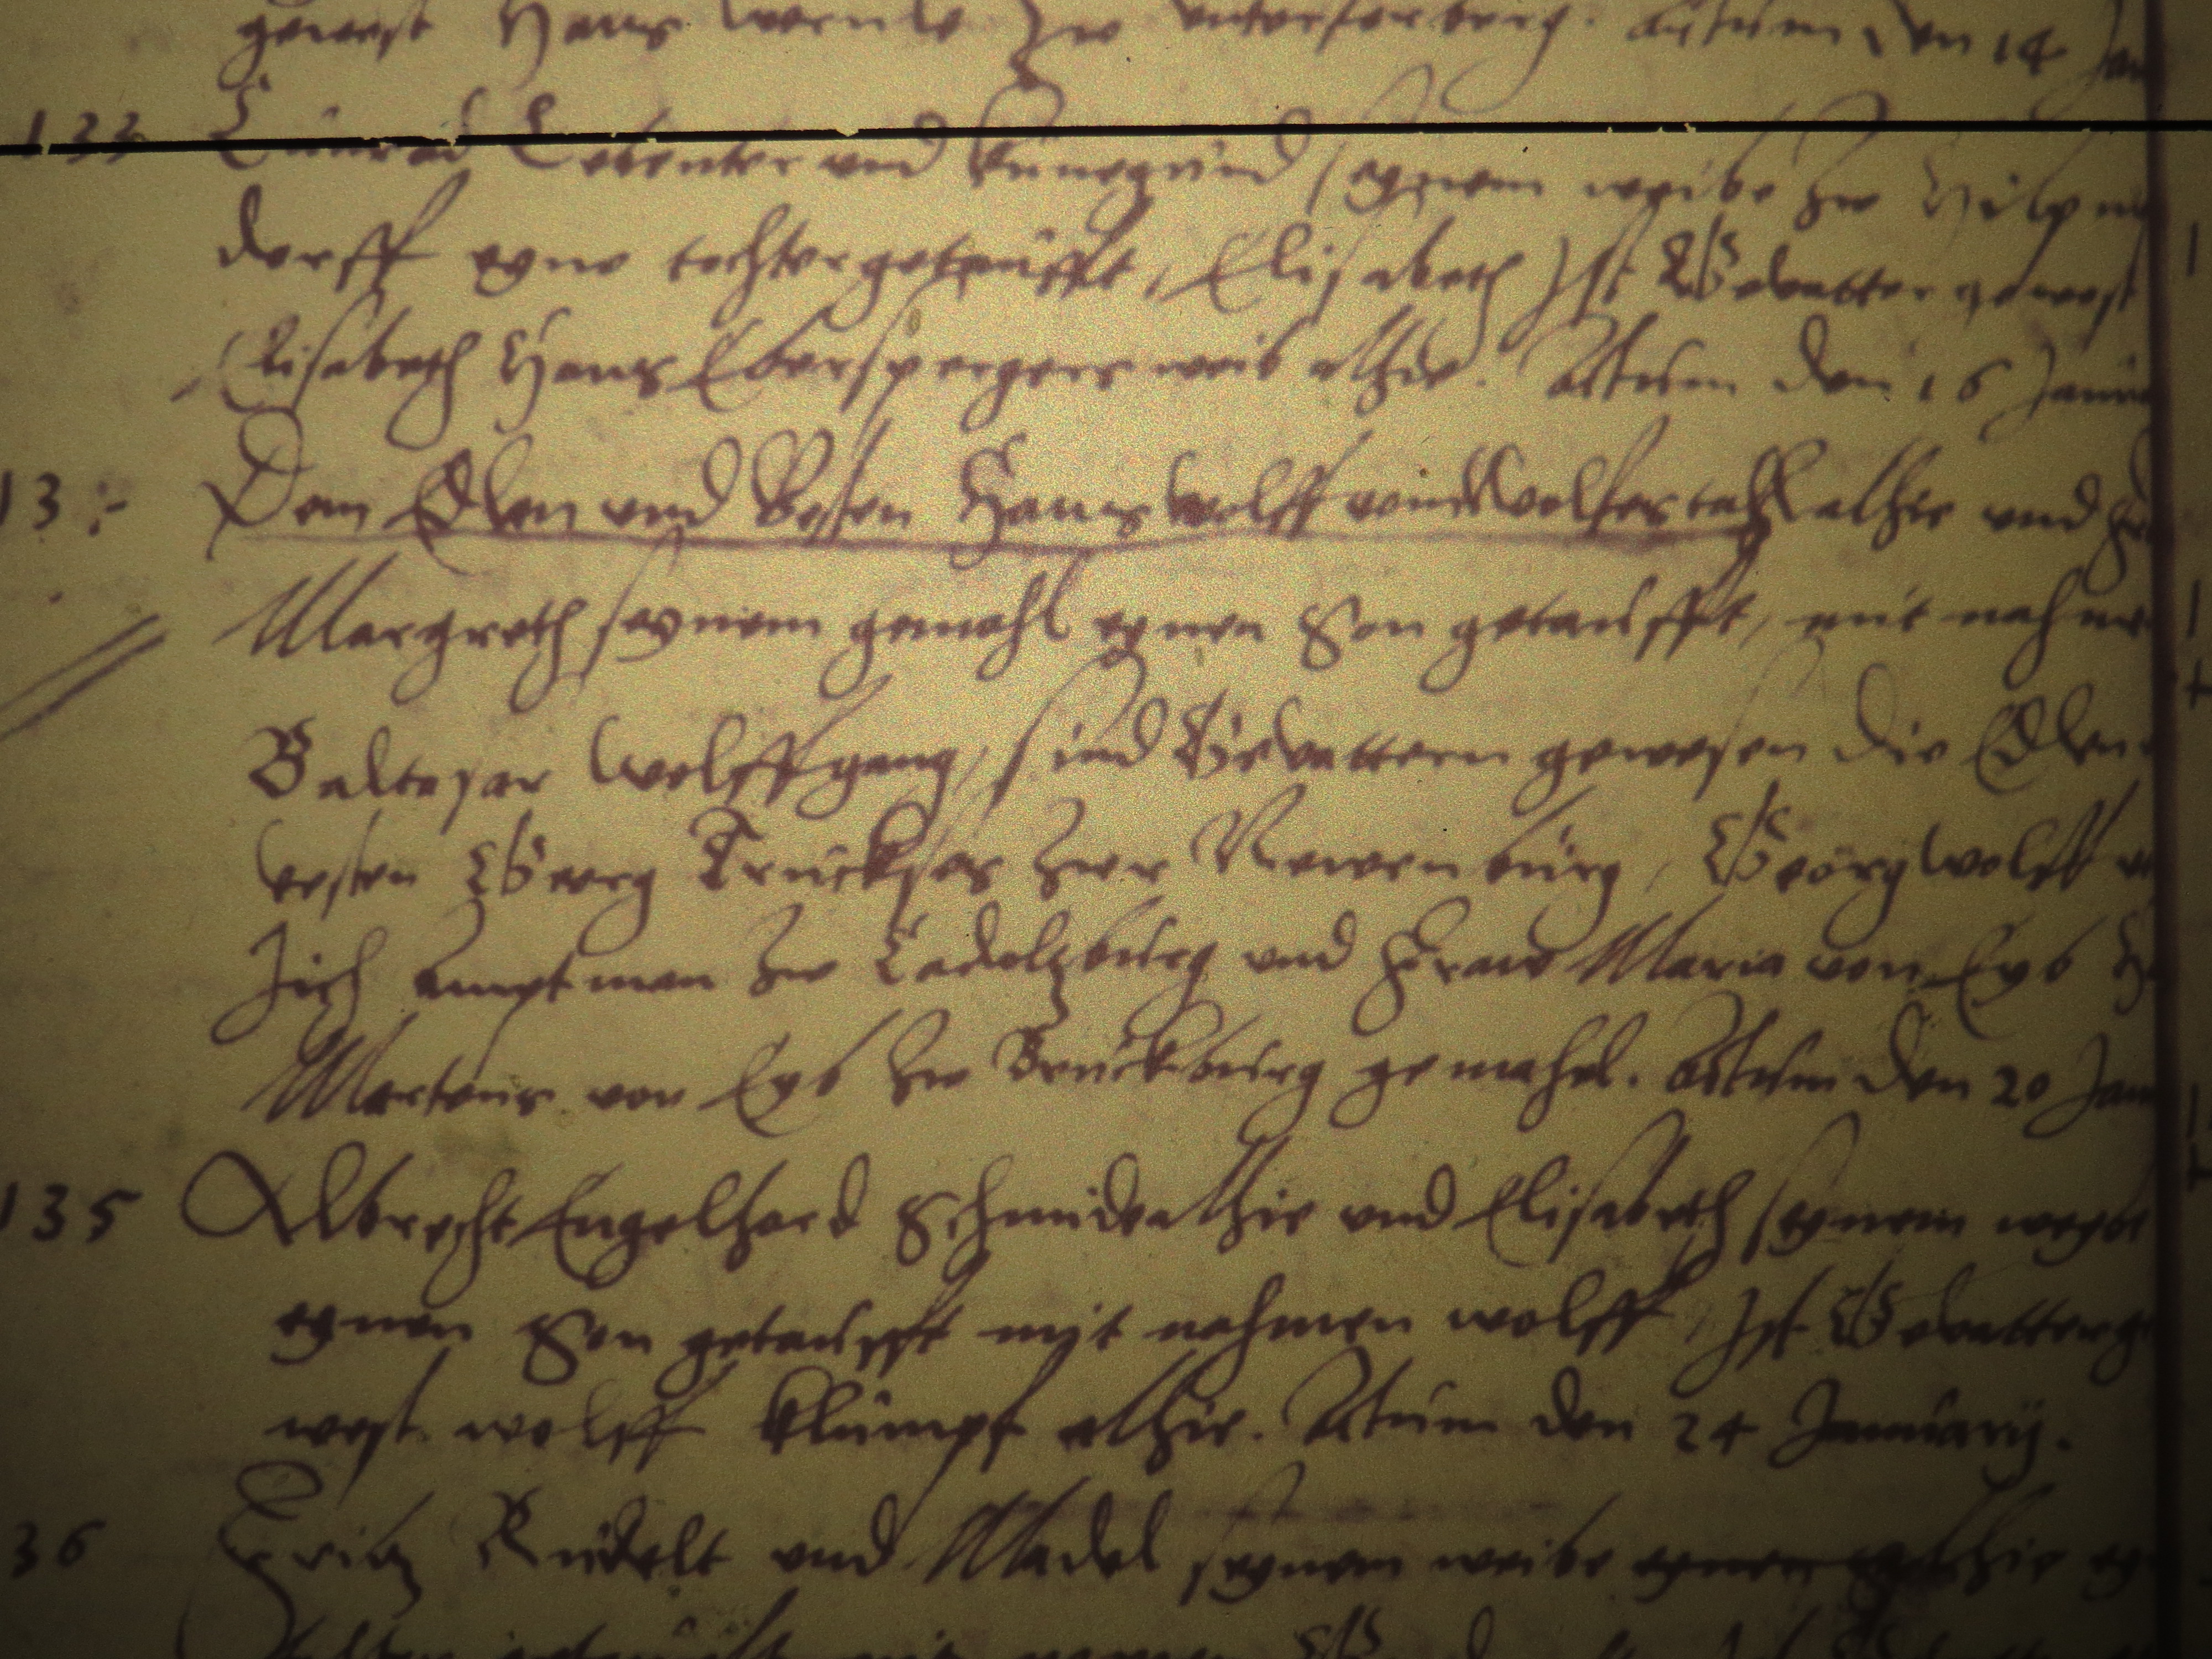 gewest Hans zu unterferberg. Actum den 14 Jan
133 Cunrad und Kunegund seynem weibe zu
dorff eyne tochter getaufft, Elisabeth Ist Gevatter gewest
Elisabeth Hans Eberspergers weib alhie. Actum den 16 Janu
13 Dem Edlen und Vesten Hans Wolff von Wolfestahl alhie und
Margreth seynem gemahl eynen Son getaufft, mit nahmen
Baltasar Wolffgang, sind Gevattern gewesen die Edlen
vesten Georg Truckses zur Newenburg, Georg Wolff
Amptman zu Cadoltzburg und Fraw Maria von Eyb
Martins von Eyb zu Bruckburg gemahel. Actum den 20 Janu
135 Albrecht Engelhard Schmid alhie und Elisabeth seynem weybe
eynen Son getaufft mit nahmen wolff, Ist Gevatter ge
west wolff Klumpf alhie. Actum den 24 Januarij.
36 Fritz Rudelt und Madel seynem weibe alhie